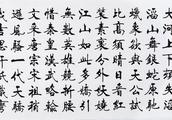 大河上下頓失滔
滔山舞銀蛇原馳
蠟象欲與天公試
比高須晴日看紅
裝素裹分外妖嬈
江山如此多嬌引
無數英雄競折腰
惜秦皇漢武略輸
文采唐宗宋祖稍
遜風騷一代天驕